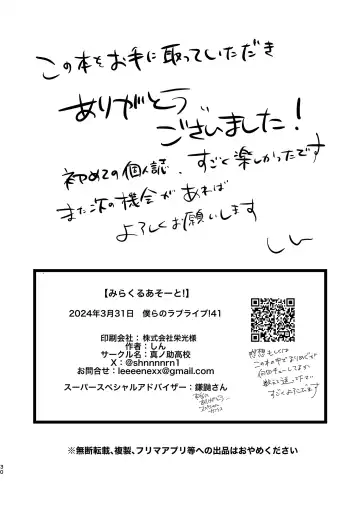 この本をお手に取っていただき
ありがとう
ございました!
初めての個人誌、すごく楽しかったです
また次の機会があれば
よろしくお願いします
しん
【みらくるあそーと!】
2024年3月31日 僕らのラブライブ!41
印刷会社:株式会社栄光様
作者:しん
サークル名:真ノ助高校
X:@shnnnnrn1
お問合せ:leeeenexx@gmail.com
スーパースペシャルアドバイザー:鎌鼬さん
感想もしくは
この本の中で
何回チューしてるか
教えて
※無断転載、複製、フリマアプリ等への出品はおやめください
30